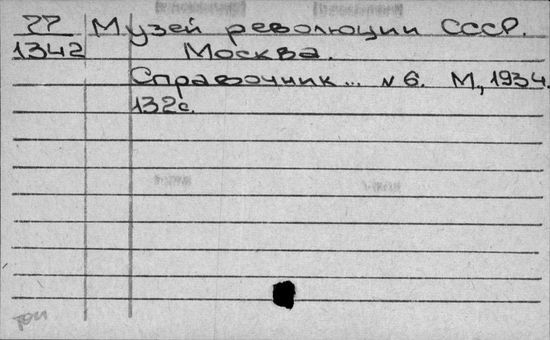 22 Музей революции СССР.
1342 Москва.
Справочник... N 6. М, 1934.
132с.